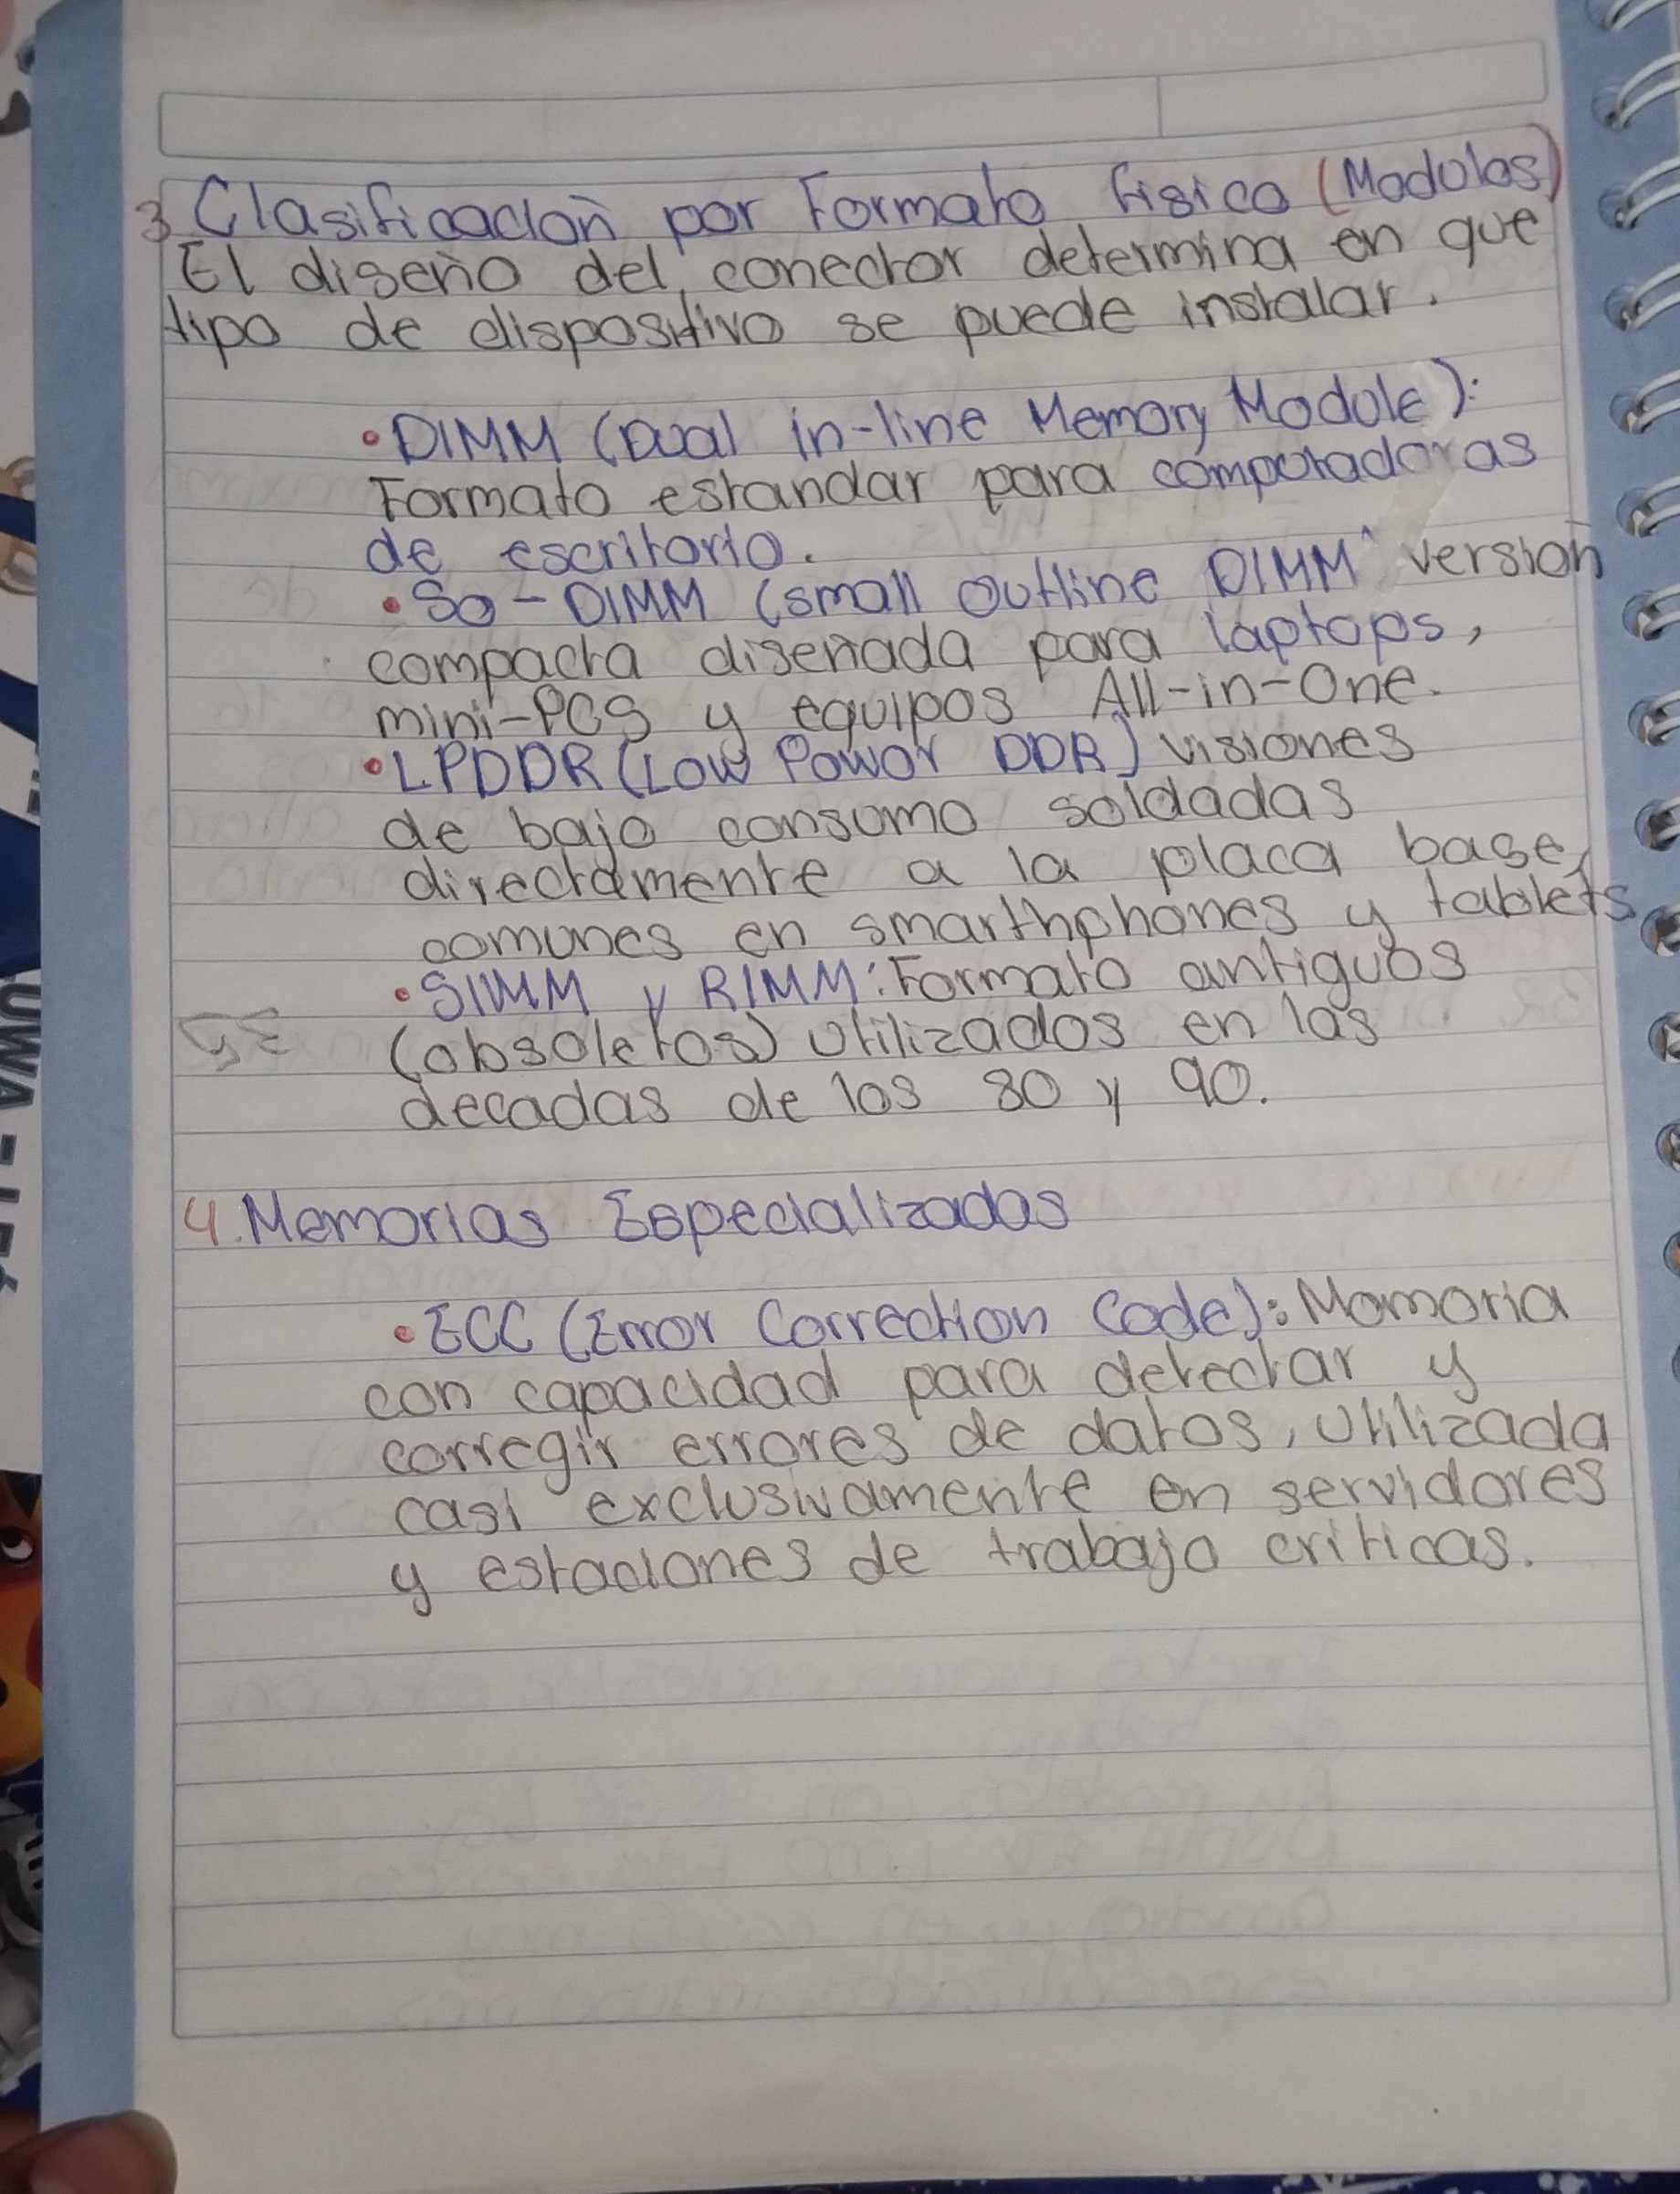 3 Clasificaciòn por Formato fisico (Modulos)
El diseño del conector determina en que
tipo de dispositivo se puede instalar.
• DIMM (Dual in-line Memory Module):
Formato estandar para computadoras
de escritorio.
• So-DIMM (small outline DIMM version
compacta diseñada para laptops,
mini-PCS y equipos All-in-One.
• LPDDR (Low Power DDR) visiones
de bajo consumo soldadas
directamente a la placa base,
comunes en smarthphones y tablets
• SIMM y RIMM: Formato antiguos
(obsoletos) utilizados en las
decadas de los 80 y 90.
4. Memorias Especializadas
• ECC (Error Correction Code): Memoria
con capacidad para detectar y
corregir errores de datos, utilizada
casi exclusivamente en servidores
y estaciones de trabajo criticas.